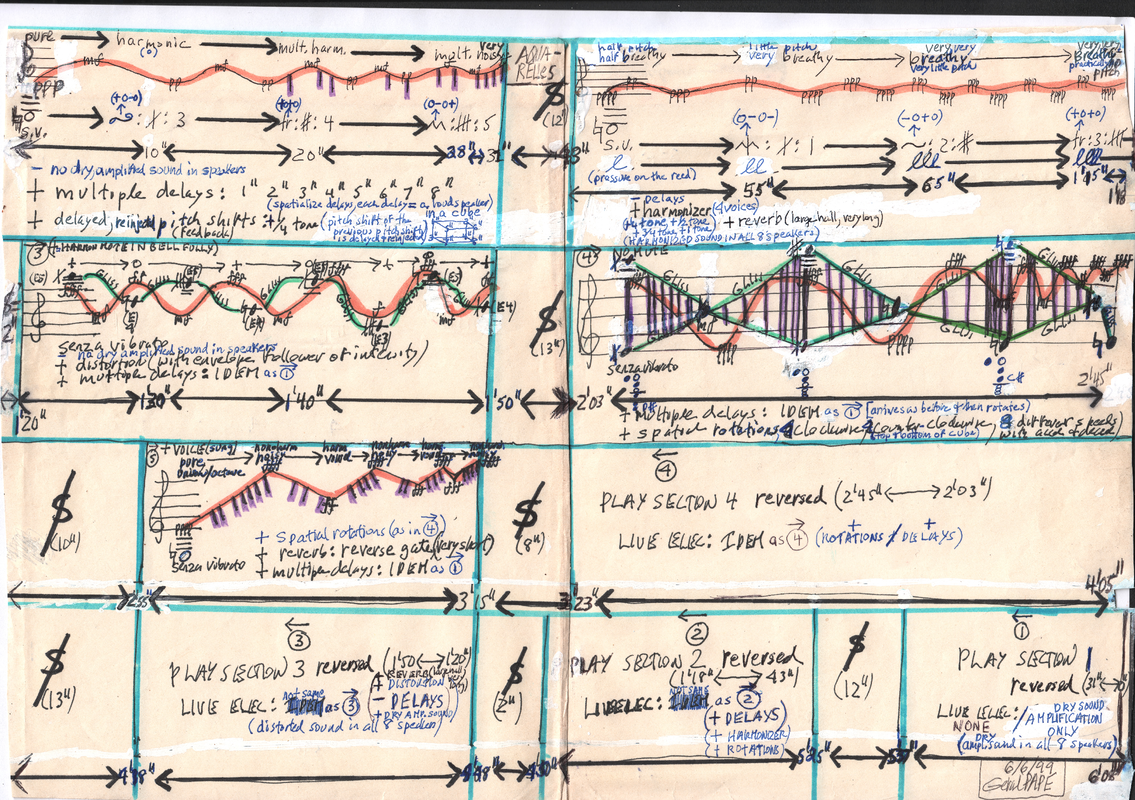 pure → harmonic → mult. harm. → mult. very noisy
(0)
mf mf mf mf
ppp pp pp pp
(+0-0) (0-0+)
s.v. → : 3 → tr: #: 4 → : 5
10" 20" 28" 31"
- no dry amplified sound in speakers
+ multiple delays: 1" 2" 3" 4" 5" 6" 7" 8"
(spatialize delays, each delay = a loudspeaker in a cube
+ delayed, reinjected pitch shifts: +1/4 tone
(feedback)
(pitch shift of the previous pitch shift is delayed + reinjected)
AQUA-
RELLES
$
(12")
43"
half pitch half breathy → little pitch very breathy → very very breathy very little pitch → very very breathy practically no pitch
ppp ppp ppp pppp pppp
(0-0-) (-0+0) (+0+0)
s.v. → : 1 → ~: 2: # → tr: 3:
(pressure on the reed)
55" 65" 1'15" 1'18
- Delays
+ harmonizer (4 voices)
+ reverb (large hall, very long)
(HARMONIZED SOUND IN ALL 8 speakers)
③ + (HARMON MUTE IN BELL FULLY)
+ → 0 → + → 0 → + → 0 → +
(E5) (E4) (E5) (E4) (E5) (E3) (E5) (E4)
GLISS
mf mf ff fff mf
senza vibrato
- no dry amplified sound in speakers
+ distortion (with envelope follower of intensity)
+ multiple delays: IDEM as ①
1'20" 1'30" 1'40" 1'50"
$
(13")
④ NO MUTE
GLISS GLISS GLISS GLISS
mf pppp pppp fff
senza vibrato
C#
2'03" 2'45"
+ Multiple delays: IDEM as ① [arrives as before & then rotates]
+ spatial rotations, clockwise/counter-clockwise,
(top & bottom of cube)
different speeds with accel & decel
$
(10")
⑤ + VOICE (SUNG)
pure, unison/octave
nonharm noisy → harm voiced → nonharm noisy → harm voiced → nonharm noisy
ppp fff ff fff fff
senza vibrato
+ spatial rotations (as in ④)
+ reverb: reverse gate (very short)
+ multiple delays: IDEM as ①
2'55" 3'15"
$
(8")
④
PLAY SECTION 4 reversed (2'45" ↔ 2'03")
LIVE ELEC: IDEM as ④ (ROTATIONS + DELAYS)
3'23" 4'05"
$
(13")
③
PLAY SECTION 3 reversed (1'50 ↔ 1'20")
LIVE ELEC: not same IDEM as ③
(distorted sound in all 8 speakers)
+ DISTORTION
- DELAYS
+ DRY AMP. SOUND
4'18" 4'48"
$
(2")
4'50"
②
PLAY SECTION 2 reversed
(1'18" ↔ 43")
LIVE ELEC: NOT SAME IDEM as ②
(+ DELAYS)
(+ HARMONIZER)
(+ ROTATIONS)
5'25"
$
(12")
5'37"
①
PLAY SECTION 1
reversed (31" ↔ 0")
LIVE ELEC: NONE / DRY SOUND AMPLIFICATION ONLY
(DRY amp. sound in all 8 speakers)
6/6/99
Gerard PAPE
6'08"